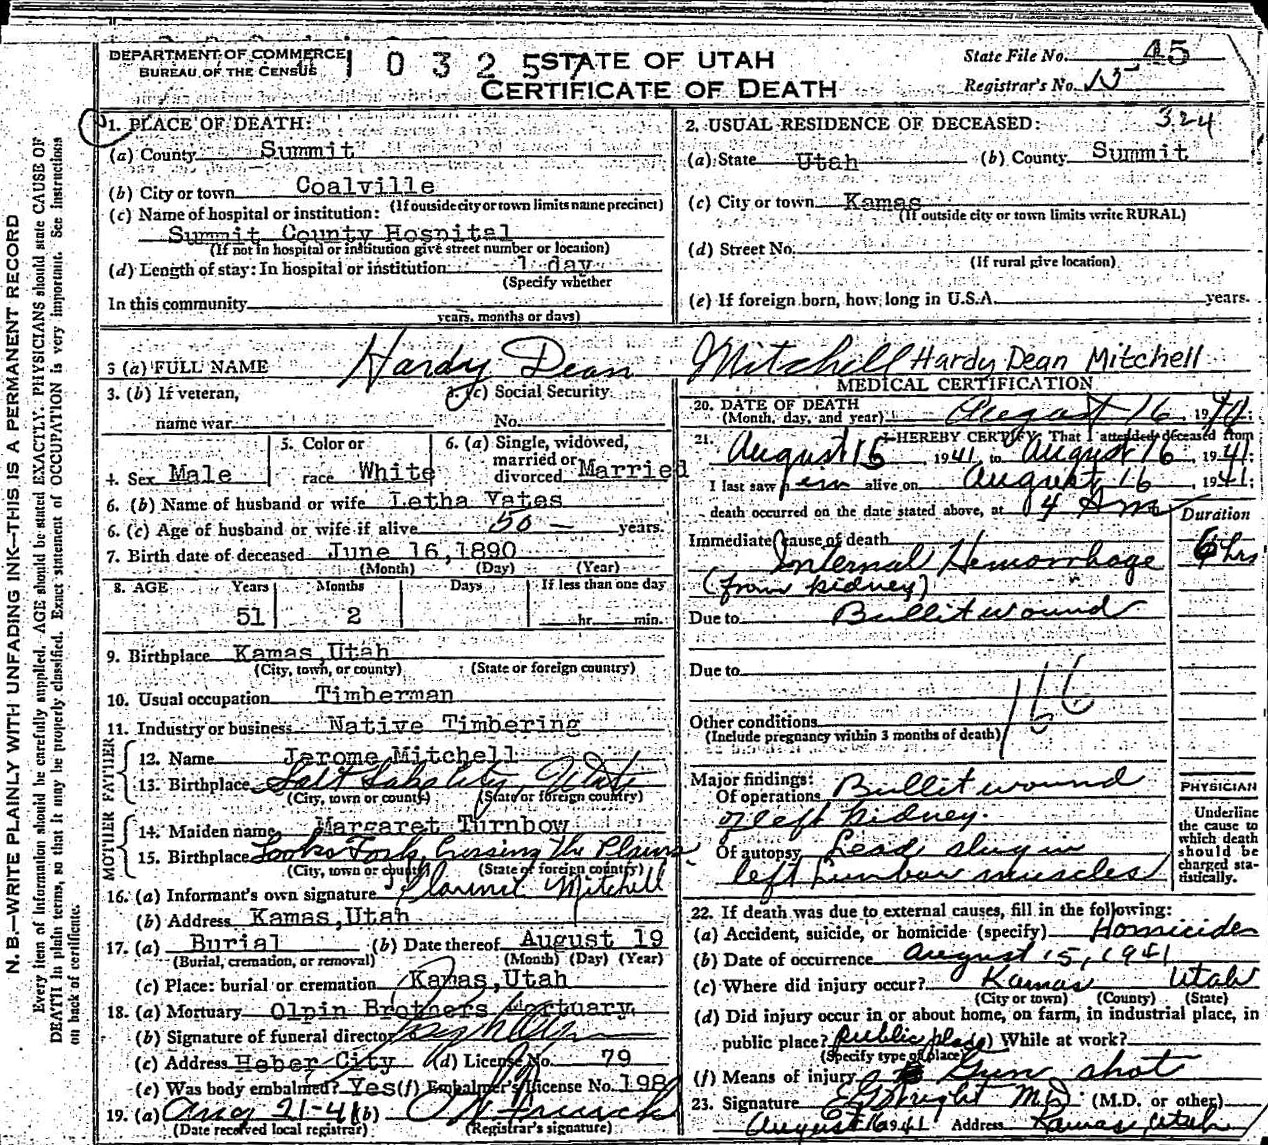 DEPARTMENT OF COMMERCE
BUREAU OF THE CENSUS
1 0 3 2 5 7
STATE OF UTAH
CERTIFICATE OF DEATH
State File No. 45
Registrar's No. 15
N. B.—WRITE PLAINLY WITH UNFADING INK—THIS IS A PERMANENT RECORD
Every item of information should be carefully supplied. AGE should be stated EXACTLY. PHYSICIANS should state CAUSE OF
DEATH in plain terms, so that it may be properly classified. Exact statement of OCCUPATION is very important. See instructions
on back of certificate.
1. PLACE OF DEATH:
(a) County Summit
(b) City or town Coalville
(If outside city or town limits name precinct)
(c) Name of hospital or institution:
Summit County Hospital
(If not in hospital or institution give street number or location)
(d) Length of stay: In hospital or institution 1 day
(Specify whether
In this community
years, months or days)
2. USUAL RESIDENCE OF DECEASED: 324
(a) State Utah (b) County Summit
(c) City or town Kamas
(If outside city or town limits write RURAL)
(d) Street No.
(If rural give location)
(e) If foreign born, how long in U.S.A. years.
3 (a) FULL NAME Hardy Dean Mitchell Hardy Dean Mitchell
3. (b) If veteran,
name war
3. (c) Social Security
No.
4. Sex Male
5. Color or
race White
6. (a) Single, widowed,
married or
divorced Married
6. (b) Name of husband or wife Letha Yates
6. (c) Age of husband or wife if alive 50 — years.
7. Birth date of deceased June 16, 1890
(Month) (Day) (Year)
8. AGE Years Months Days If less than one day
51 2 hr. min.
9. Birthplace Kamas Utah
(City, town, or county) (State or foreign country)
10. Usual occupation Timberman
11. Industry or business Native Timbering
FATHER
12. Name Jerome Mitchell
13. Birthplace Salt Lake City, Utah
(City, town or county) (State or foreign country)
MOTHER
14. Maiden name Margaret Turnbow
15. Birthplace Crossing The Plains
(City, town or county) (State or foreign country)
16. (a) Informant's own signature Mitchell
(b) Address Kamas, Utah
17. (a) Burial (b) Date thereof August 19
(Burial, cremation, or removal) (Month) (Day) (Year)
(c) Place: burial or cremation Kamas, Utah
18. (a) Mortuary Olpin Brothers Mortuary
(b) Signature of funeral director
(c) Address Heber City (d) License No. 79
(e) Was body embalmed? Yes (f) Embalmer's License No. 198
19. (a) Aug 21-41 (b)
(Date received local registrar) (Registrar's signature)
MEDICAL CERTIFICATION
20. DATE OF DEATH
(Month, day, and year) August 16, 1941;
21. I HEREBY CERTIFY, That I attended deceased from
August 15 1941 to August 16, 1941;
I last saw him alive on August 16 1941;
death occurred on the date stated above, at 4 Am
Duration
Immediate cause of death
Internal Hemorrhage 6 hrs
(from kidney)
Due to Bullit wound
Due to
166
Other conditions
(Include pregnancy within 3 months of death)
Major findings:
Of operations Bullit wound
of left kidney.
Of autopsy Lead slug in
left Lumbar muscles
PHYSICIAN
Underline
the cause to
which death
should be
charged sta-
tistically.
22. If death was due to external causes, fill in the following:
(a) Accident, suicide, or homicide (specify) Homicide
(b) Date of occurrence August 15, 1941
(c) Where did injury occur? Kamas Utah
(City or town) (County) (State)
(d) Did injury occur in or about home, on farm, in industrial place, in
public place? public place While at work?
(Specify type of place)
(f) Means of injury Gun shot
23. Signature Wright M.D. (M.D. or other)
August 16 1941 Address Kamas, Utah